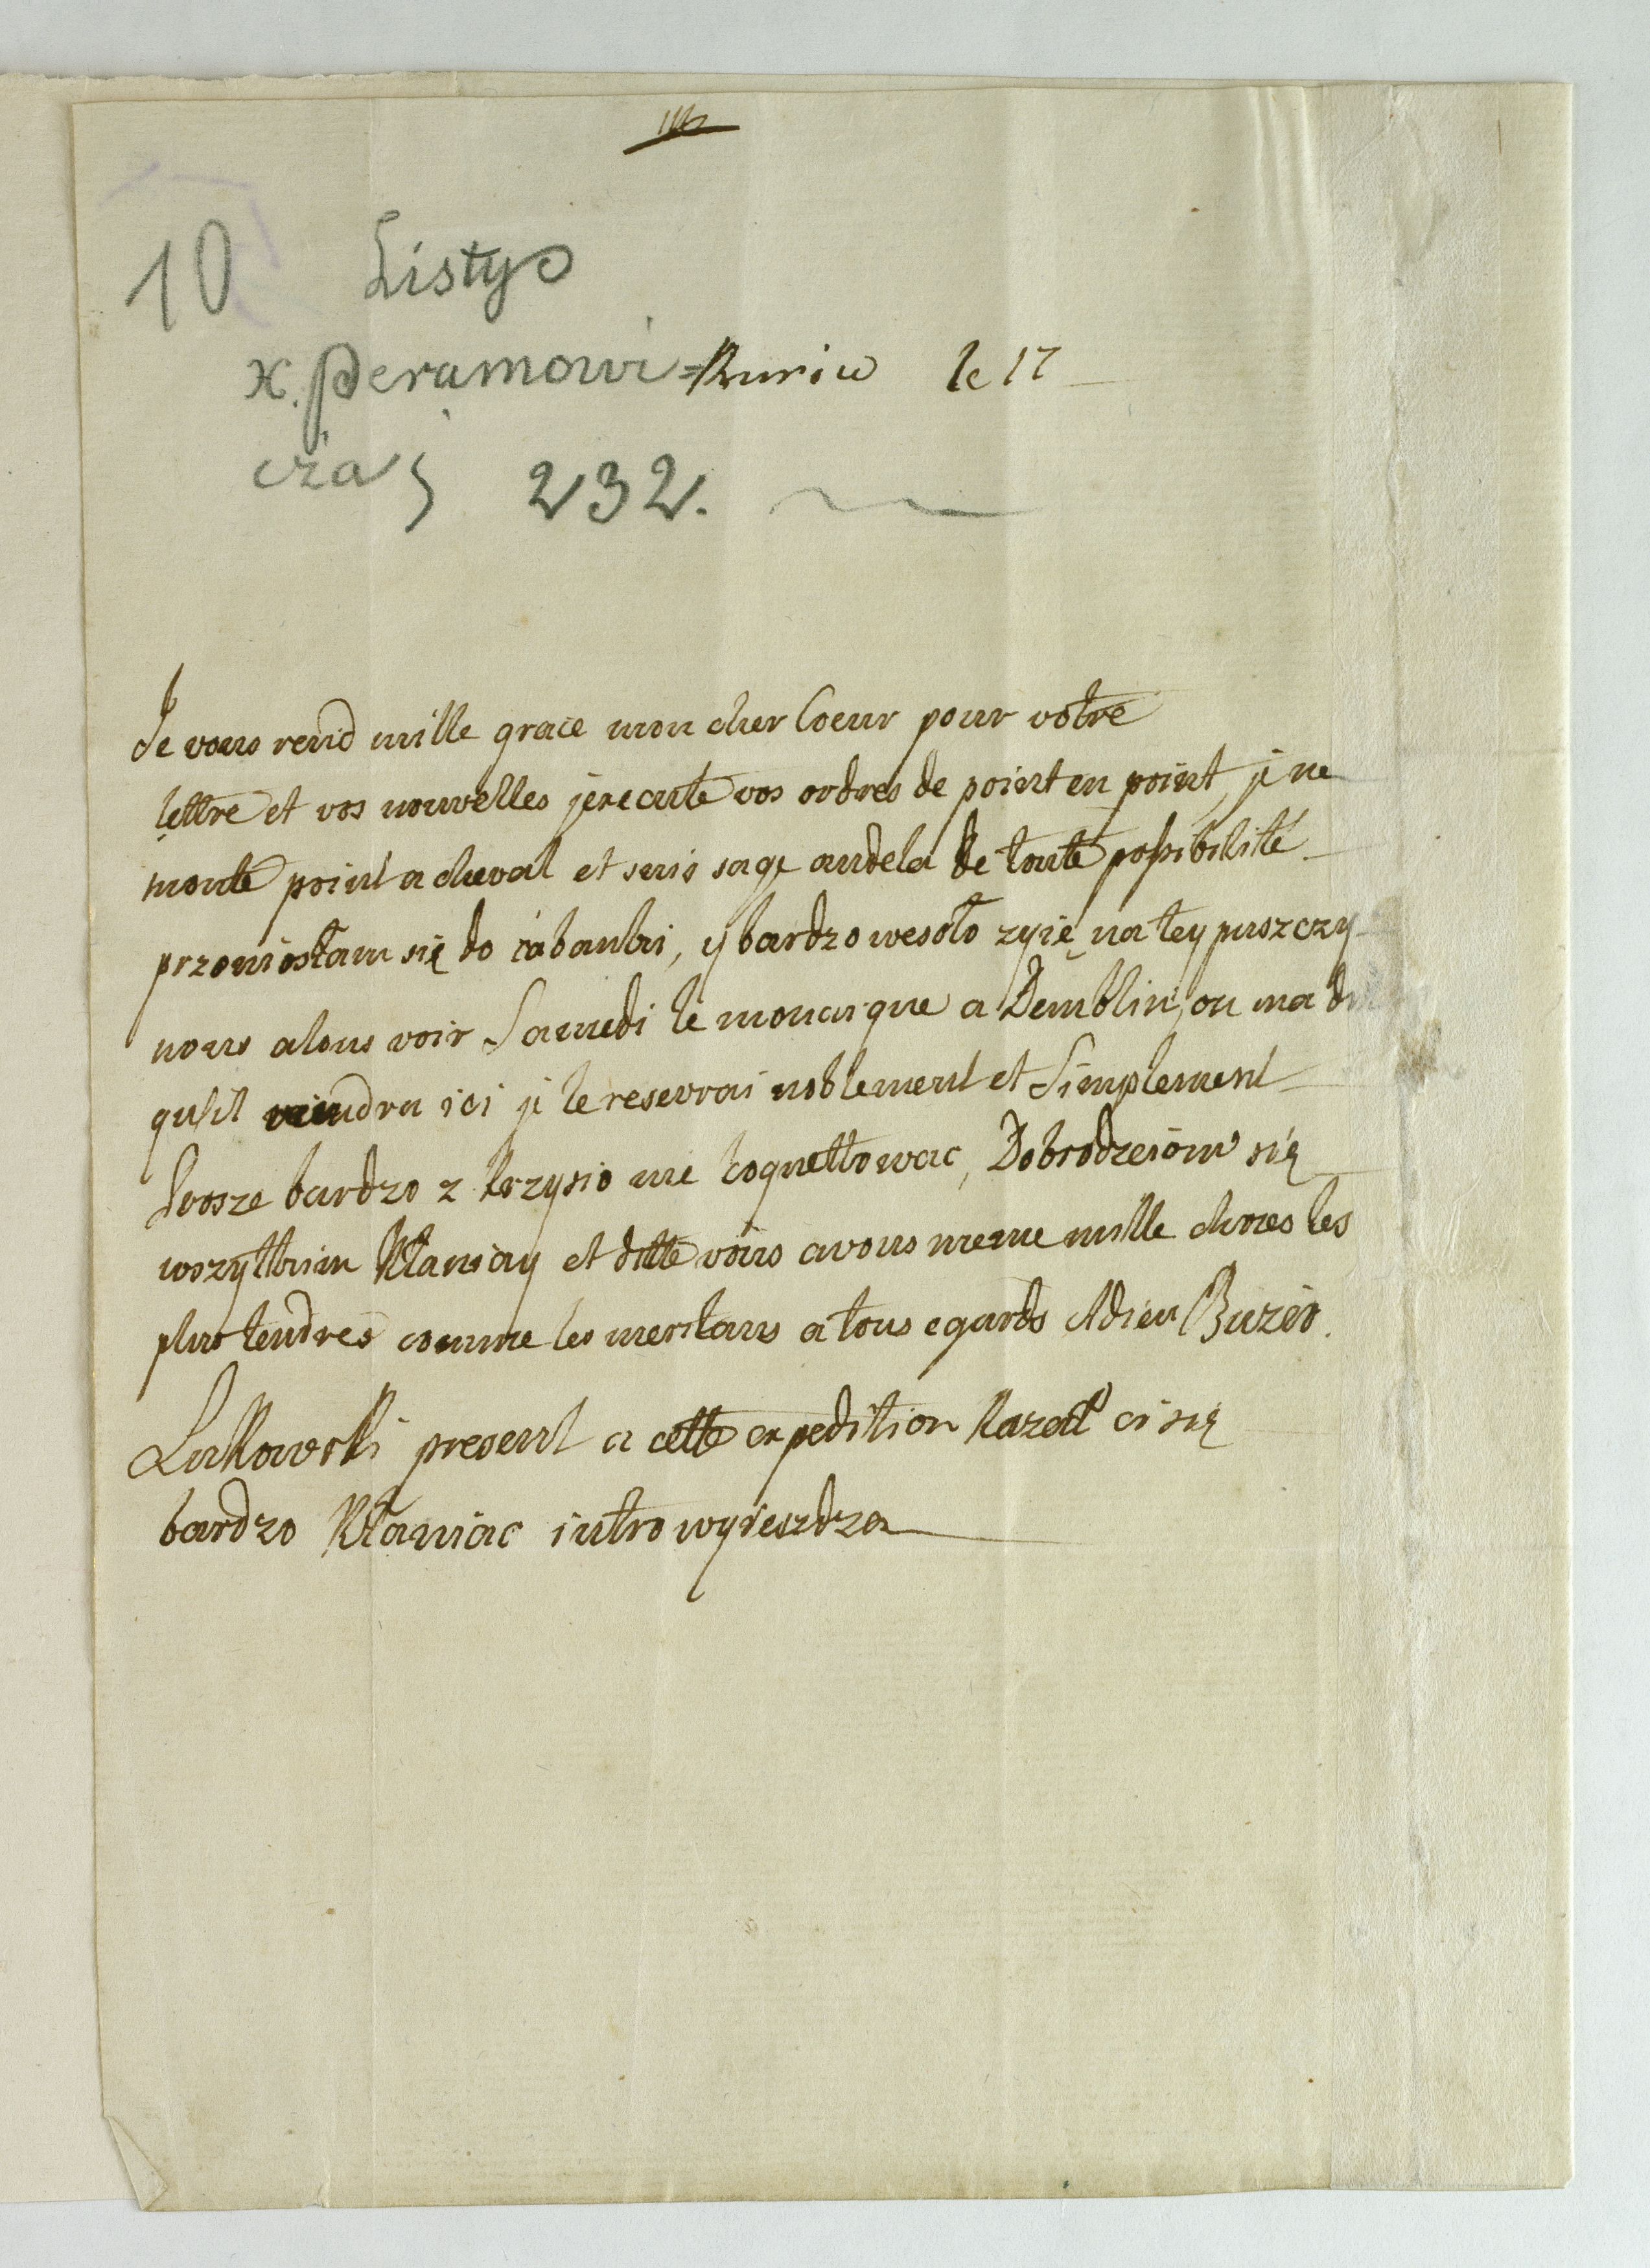 10 Listy
x. Peramowi=
cza; 232.
Kuriw le 17
Je vous rend mille grace mon cher Coeur pour votre
lettre et vos nouvelles jexecute vos ordres de point en point, je ne
monte point a cheval et suis sage audela de toute possibilité
przeniosłam się do cabanki, y bardzo wesoło zyię na tey puszczy
nous alons voir Samedi le monarque a Demblin, on ma dit
qu'il viendra ici je le reseverai noblement et Simplement
Prosze bardzo z Krzysią nie koquettowac, Dobrodzieiom się
wszyttkim Kłaniay et ditte vous avous meme mille choses les
plus tendres comme les meritans a tous egards Adieu Buzio.
Lukowski present a cette expedition Kazał ci się
bardzo Kłaniac iutro wyieszdza